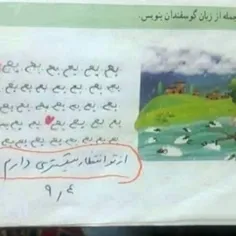 جمله از زبان گوسفندان بنویس.
بع بع بع بع بع بع بع
بع بع بع بع بع بع بع
بع بع بع بع بع بع
بع بع بع بع بع بع
بع بع بع بع بع بع
بع بع بع بع بع بع بع
از تو انتظار بیشتری دارم
۹,۴